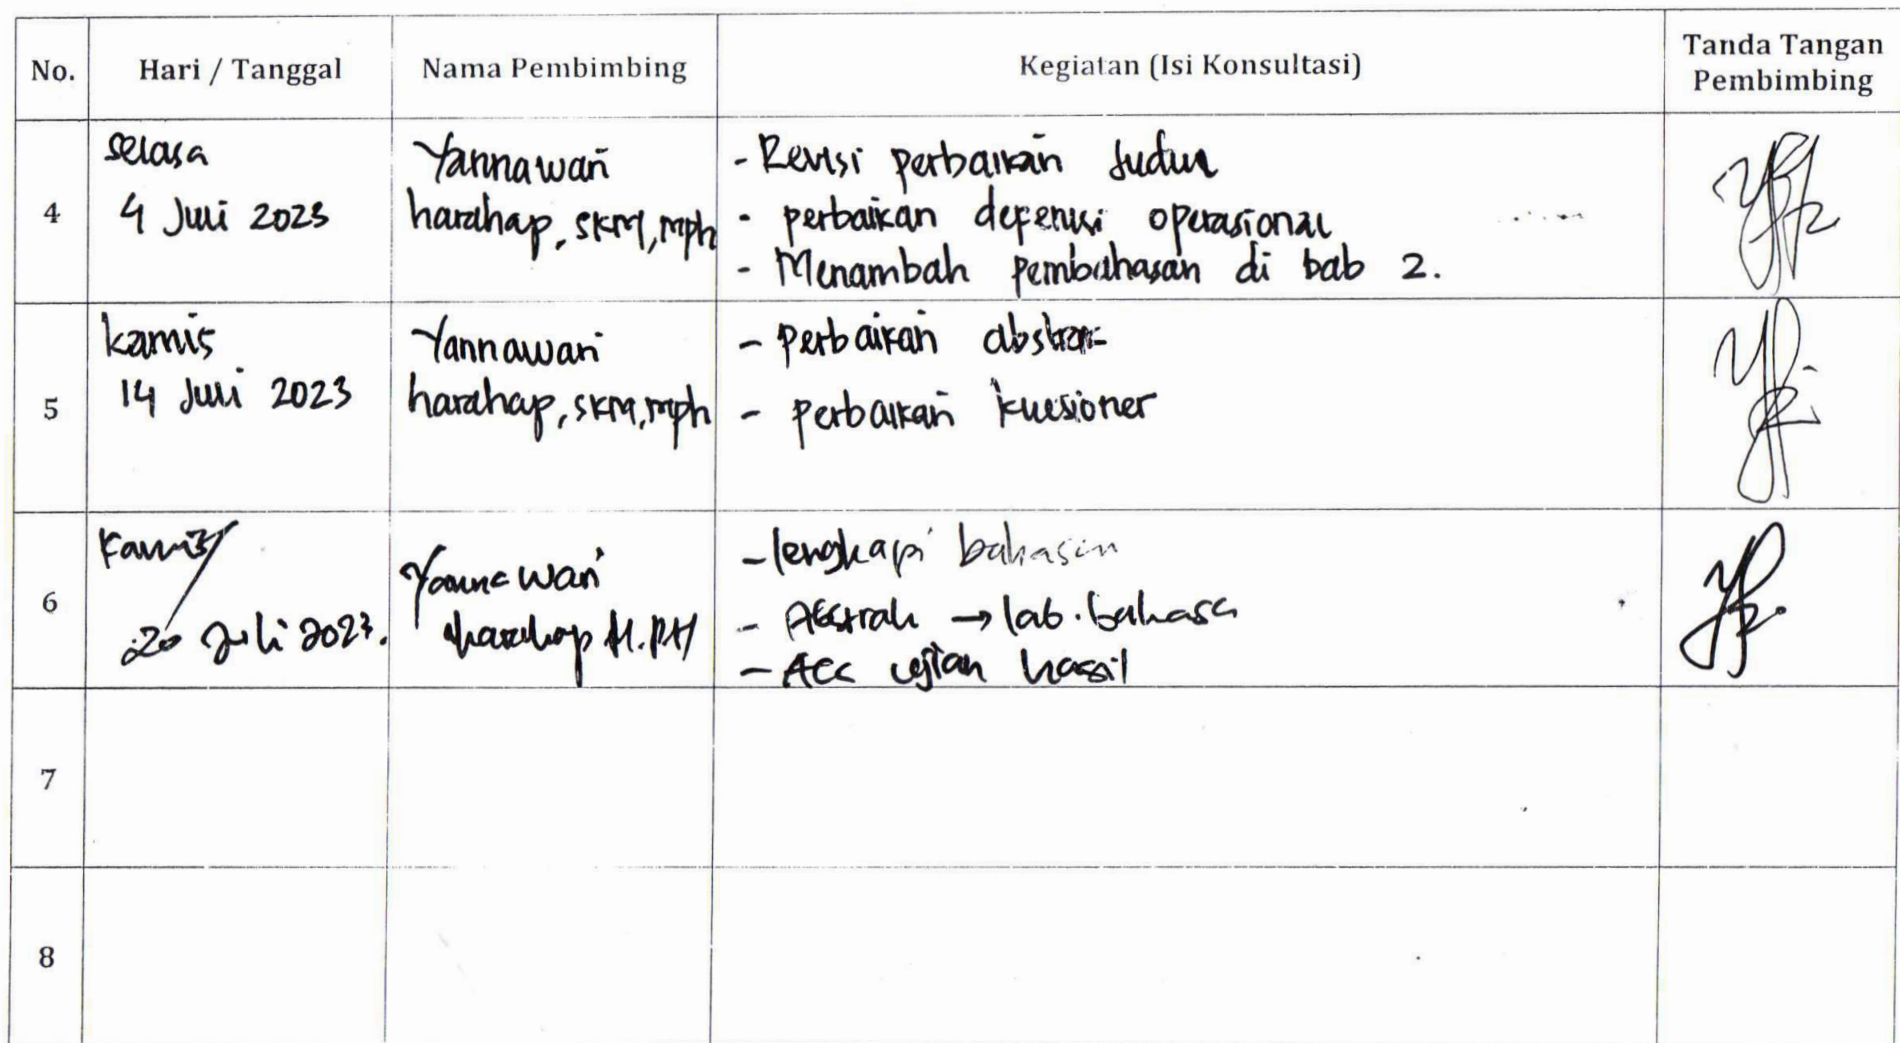 No. Hari / Tanggal Nama Pembimbing Kegiatan (Isi Konsultasi) Tanda Tangan
Pembimbing
4
Selasa
4 Juli 2023
Yannawari
harahap, SKM, mph
- Revisi perbaikan Judul
- perbaikan defenisi operasional
- Menambah pembahasan di bab 2.
5
kamis
14 Juli 2023
Yannawari
harahap, SKM, mph
- perbaikan abstrak
- perbaikan kuesioner
6
Kamis/
20 Juli 2023.
Yannawari
harahap M.PH
- lengkapi bahasan
- Abstrak → lab. bahasa
- Acc ujian hasil
7
8